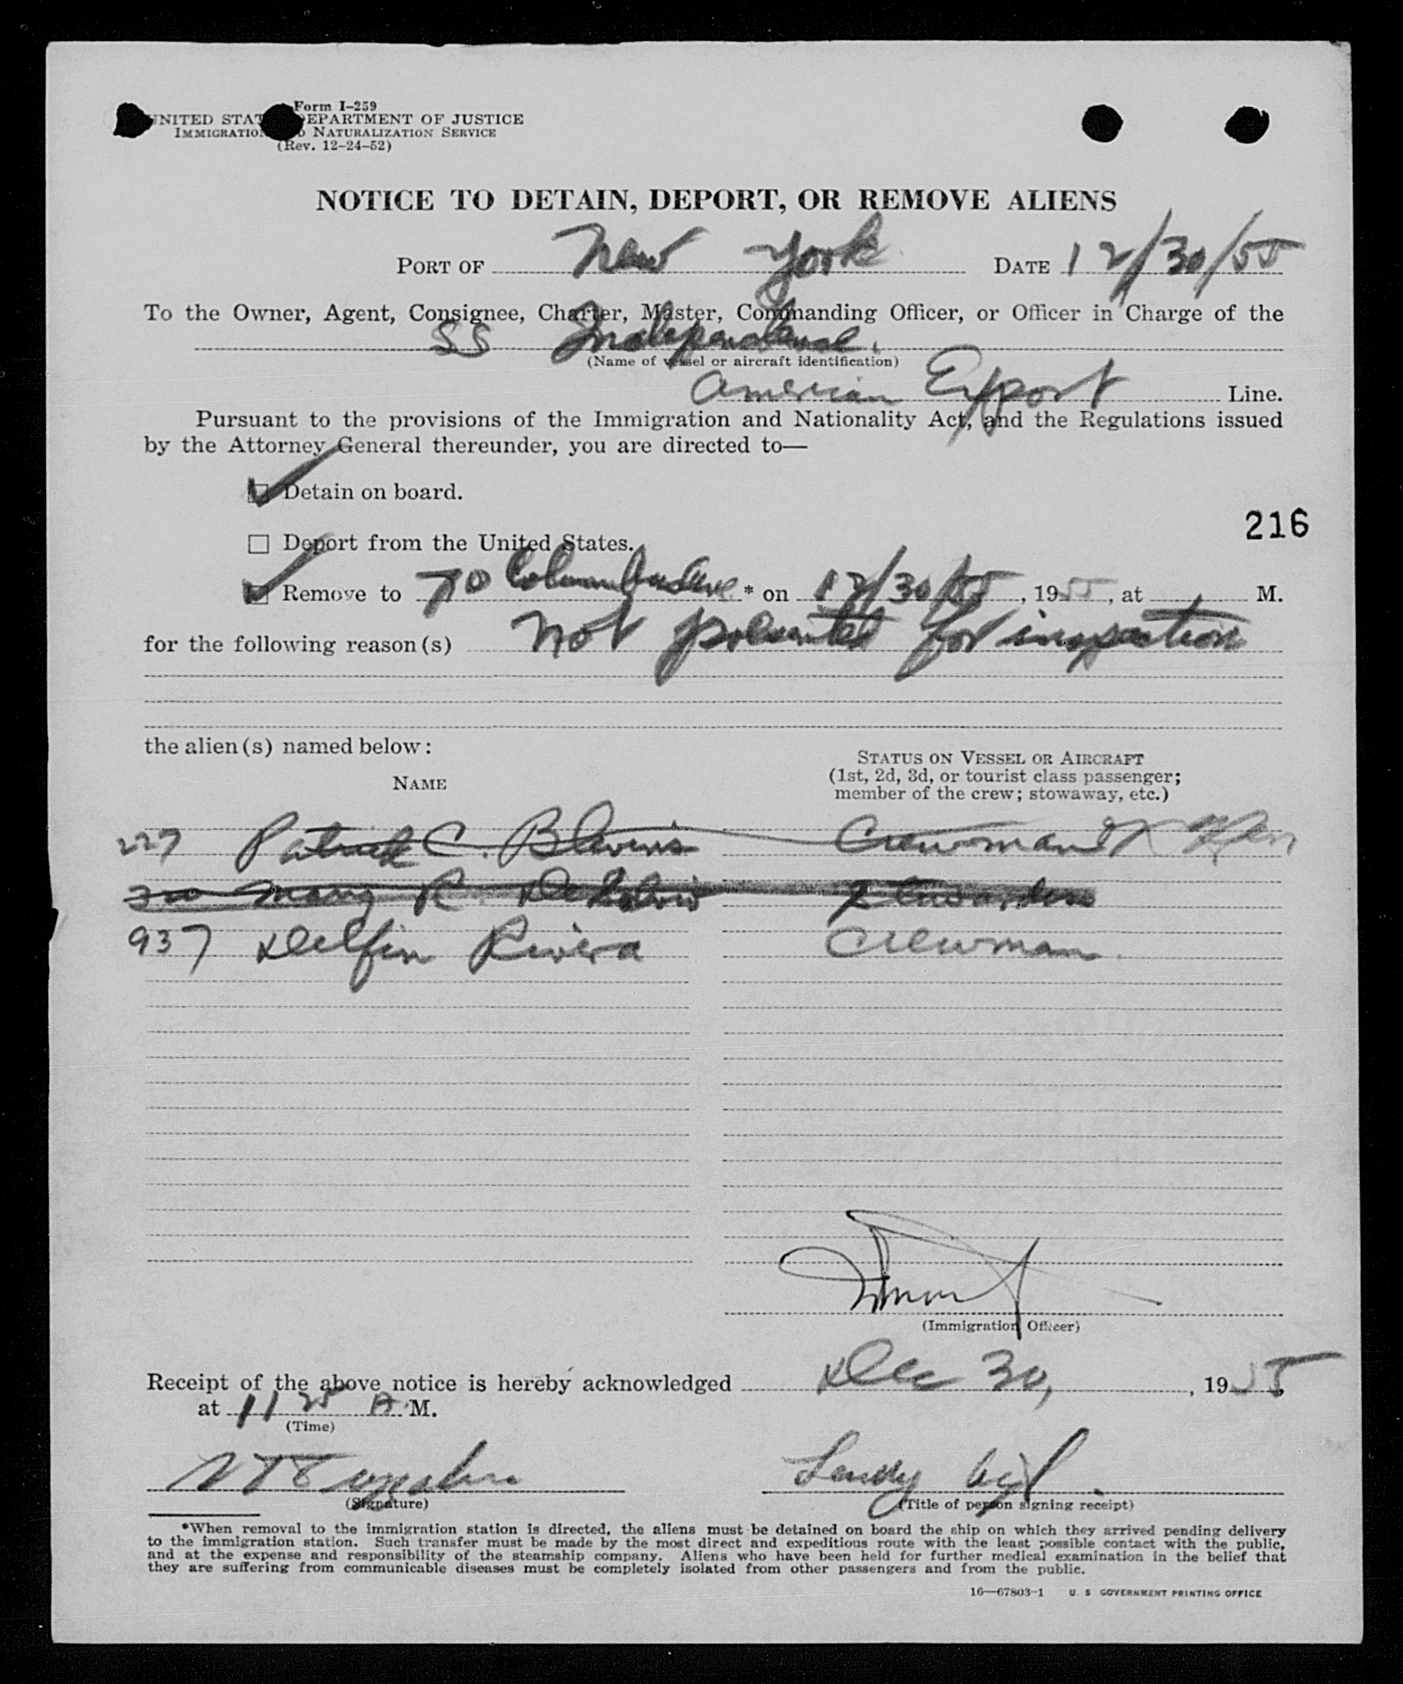 Form I-259
UNITED STATES DEPARTMENT OF JUSTICE
IMMIGRATION AND NATURALIZATION SERVICE
(Rev. 12-24-52)
NOTICE TO DETAIN, DEPORT, OR REMOVE ALIENS
PORT OF New York DATE 12/30/55
To the Owner, Agent, Consignee, Charter, Master, Commanding Officer, or Officer in Charge of the
SS Independence.
(Name of vessel or aircraft identification)
American Export Line.
Pursuant to the provisions of the Immigration and Nationality Act, and the Regulations issued
by the Attorney General thereunder, you are directed to—
Detain on board.
216
Deport from the United States.
Remove to 70 Columbus Ave * on 12/30/55, 1955, at M.
for the following reason(s) Not presented for inspection
the alien(s) named below:
NAME
STATUS ON VESSEL OR AIRCRAFT
(1st, 2d, 3d, or tourist class passenger;
member of the crew; stowaway, etc.)
227 Patrick C. Blevins Crewman
R.
937 Delfin Rivera Crewman.
(Immigration Officer)
Receipt of the above notice is hereby acknowledged Dec 30, , 1955
at 11 25 A. M.
(Time)
(Signature)
(Title of person signing receipt)
*When removal to the immigration station is directed, the aliens must be detained on board the ship on which they arrived pending delivery
to the immigration station. Such transfer must be made by the most direct and expeditious route with the least possible contact with the public,
and at the expense and responsibility of the steamship company. Aliens who have been held for further medical examination in the belief that
they are suffering from communicable diseases must be completely isolated from other passengers and from the public.
16—67803-1 U. S. GOVERNMENT PRINTING OFFICE